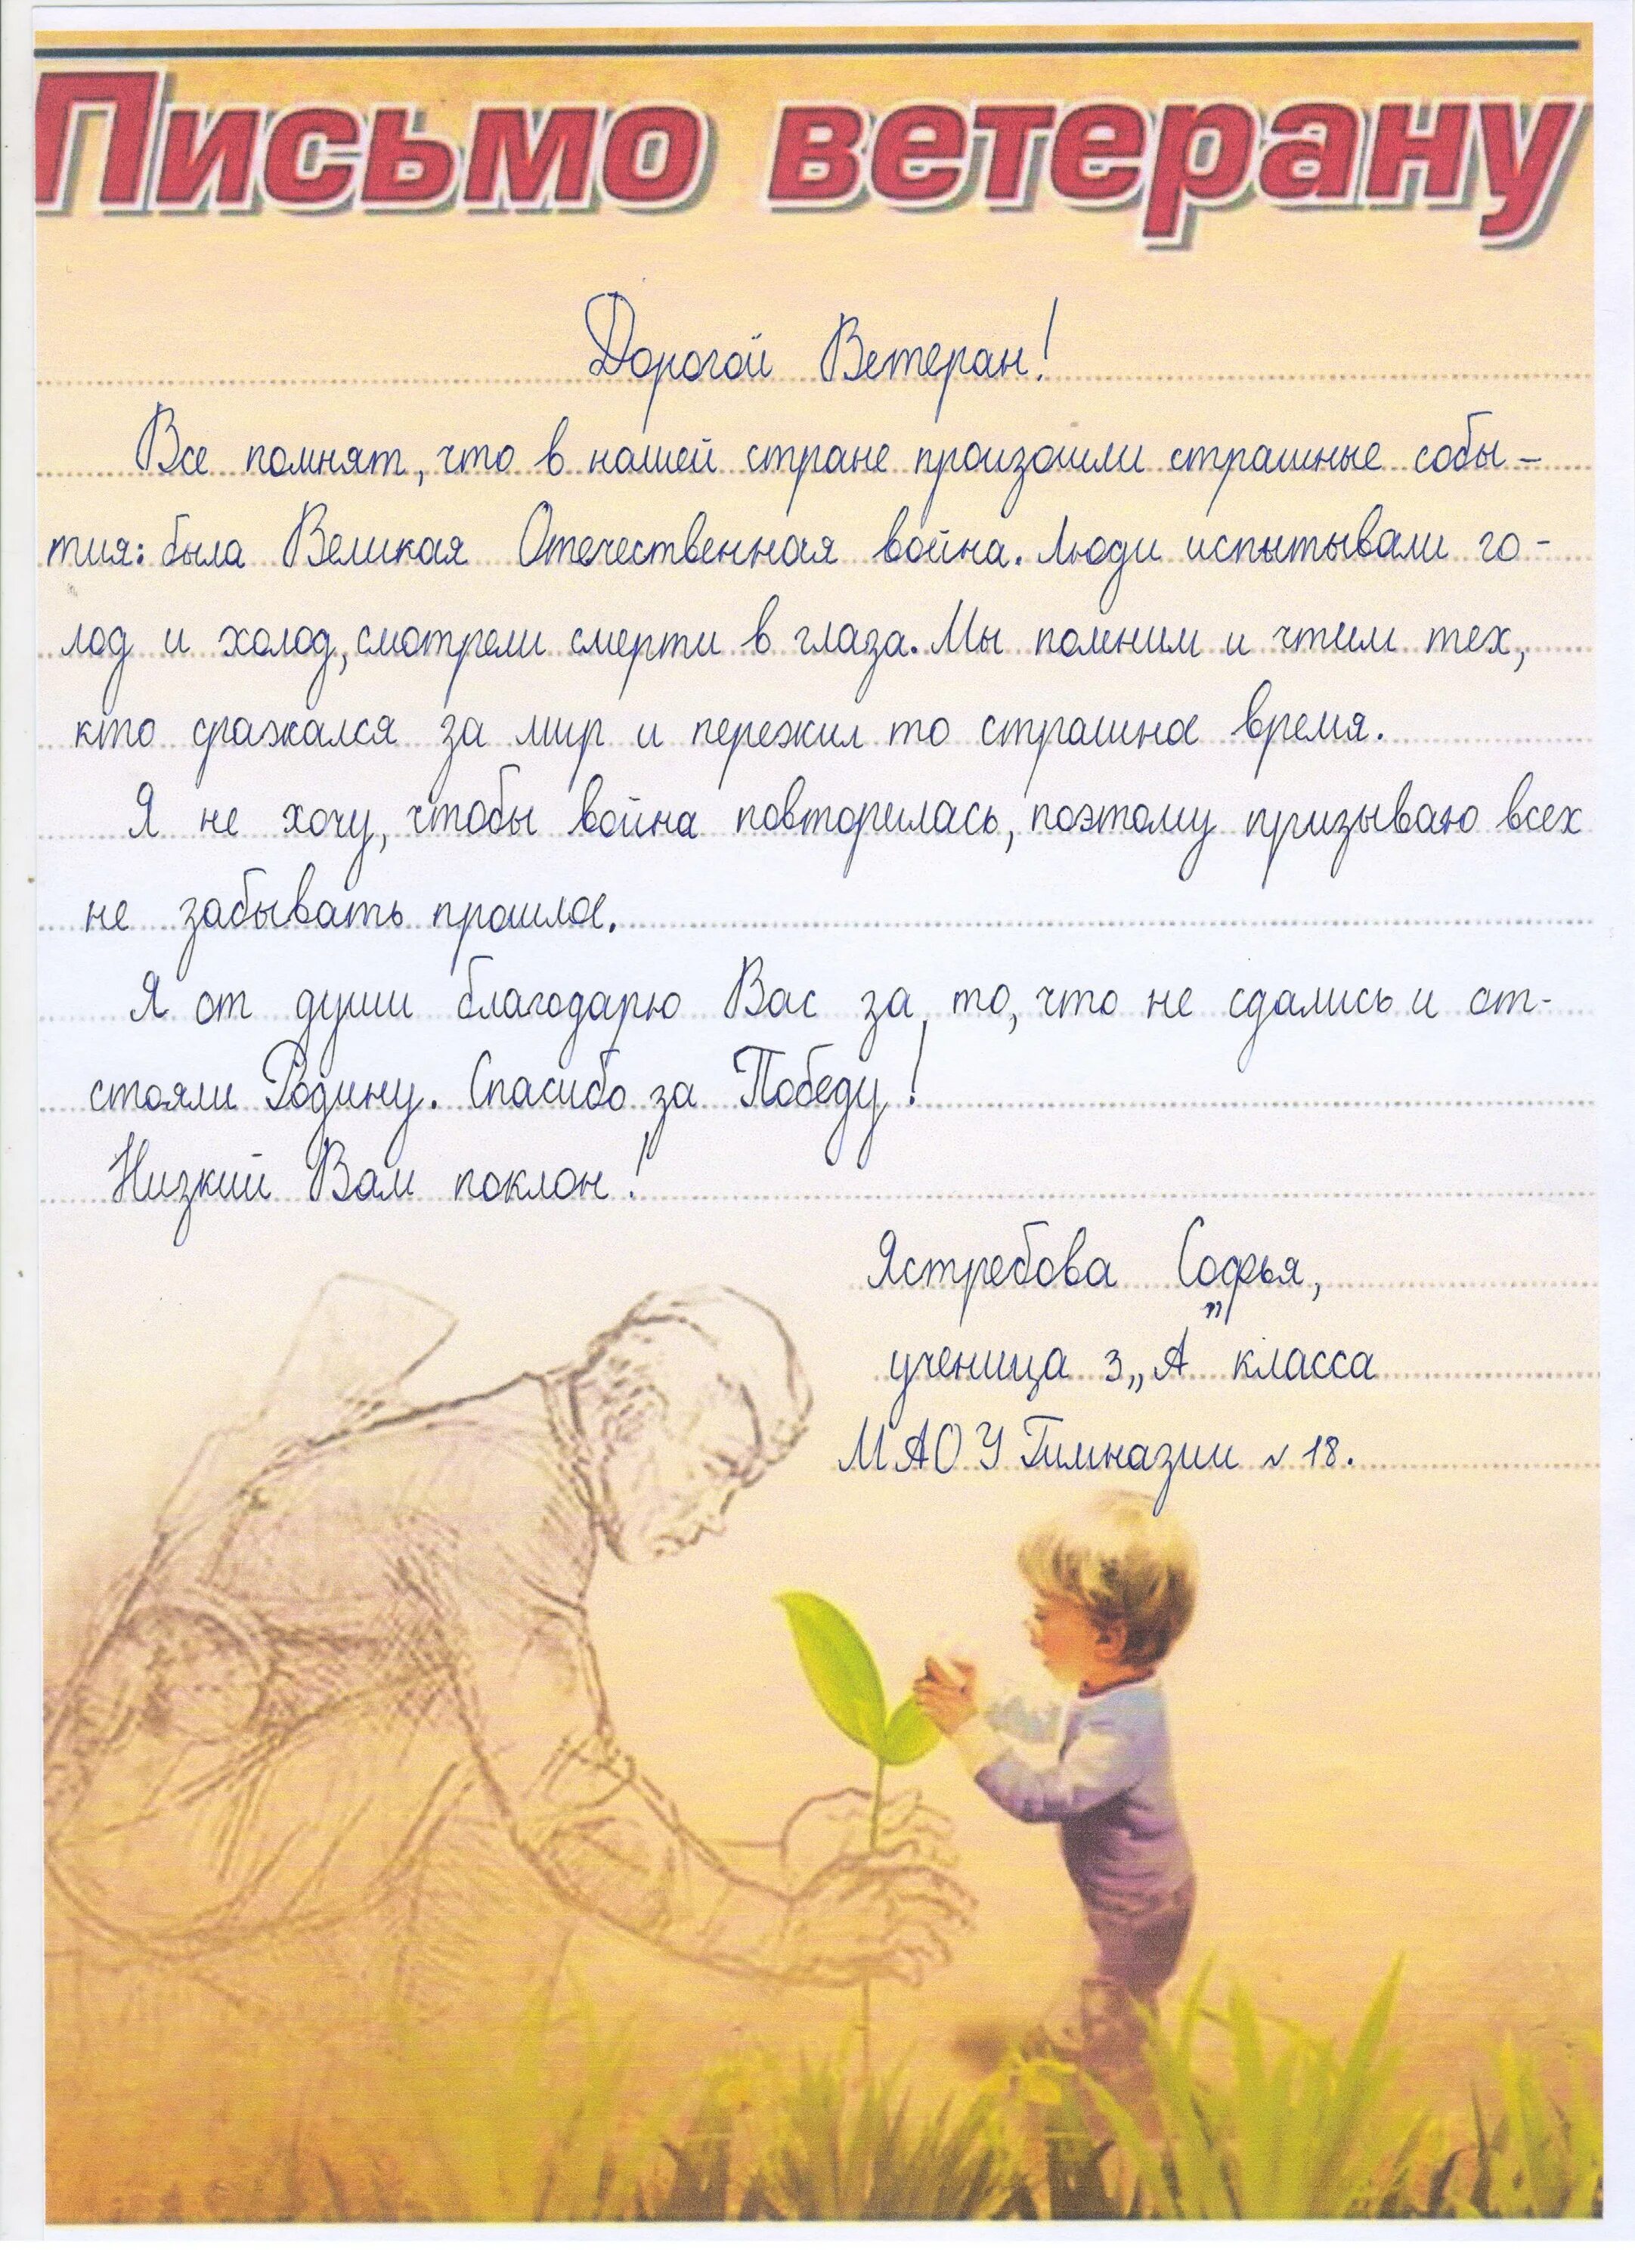 Письмо ветерану
Дорогой Ветеран!
Все помнят, что в нашей стране произошли страшные собы-
тия: была Великая Отечественная война. Люди испытывали го-
лод и холод, смотрели смерти в глаза. Мы помним и чтим тех,
кто сражался за мир и пережил то страшное время.
Я не хочу, чтобы война повторилась, поэтому призываю всех
не забывать прошлое.
Я от души благодарю Вас за то, что не сдались и от-
стояли Родину. Спасибо за Победу!
Низкий Вам поклон!
Ястребова Софья,
ученица 3 „А" класса
МАОУ Гимназии № 18.